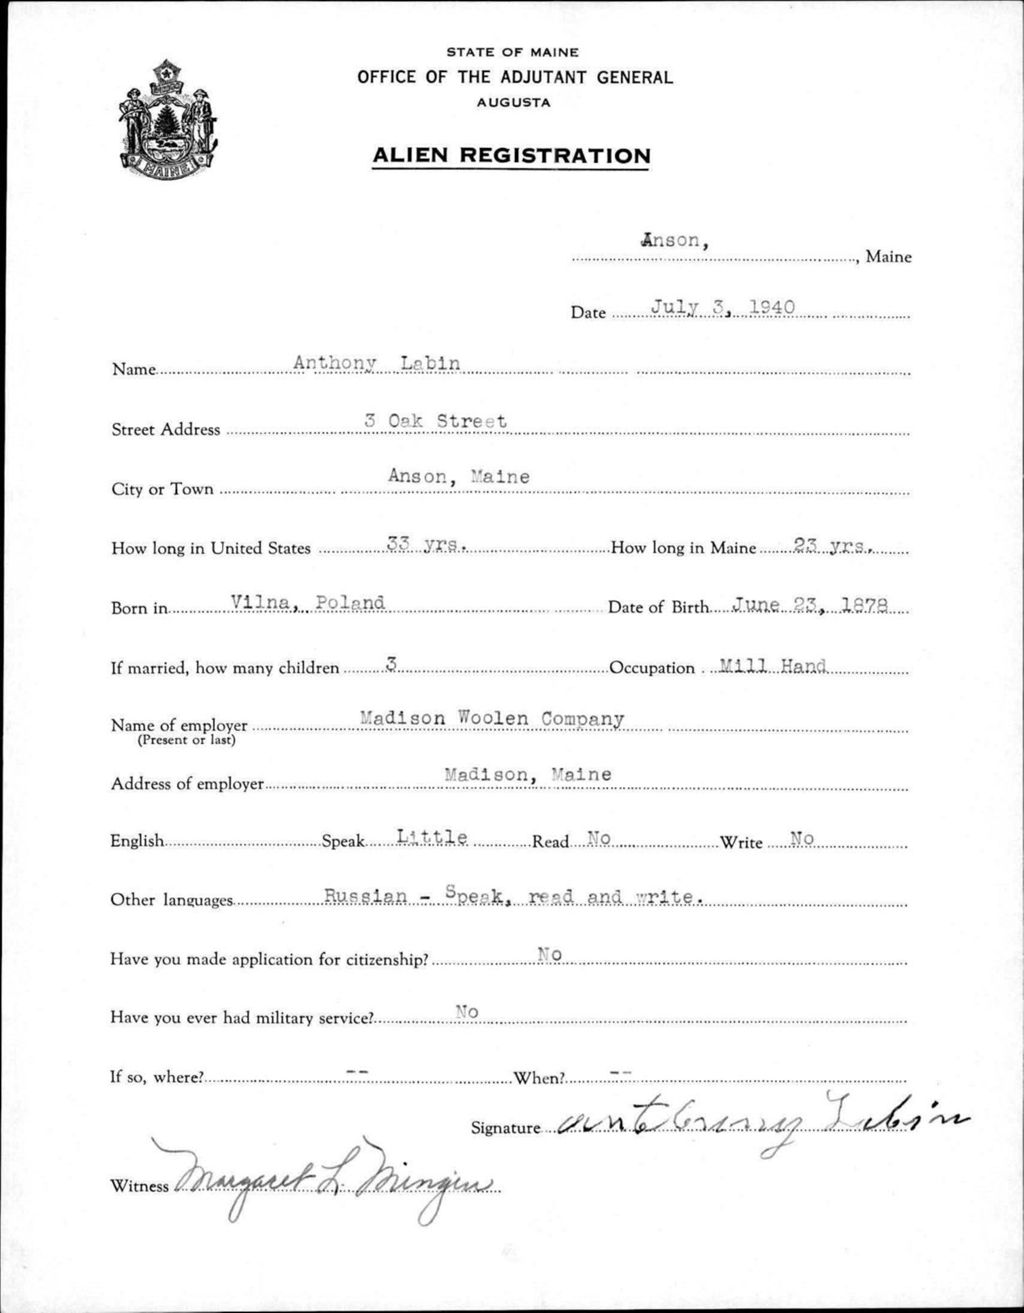 STATE OF MAINE
OFFICE OF THE ADJUTANT GENERAL
AUGUSTA
ALIEN REGISTRATION
MAINE
Anson, , Maine
Date July 3, 1940
Name Anthony Labin
Street Address 3 Oak Street
City or Town Anson, Maine
How long in United States 33 yrs. How long in Maine 23 yrs.
Born in Vilna, Poland Date of Birth June 23, 1878
If married, how many children 3 Occupation Mill Hand
Name of employer Madison Woolen Company
(Present or last)
Address of employer Madison, Maine
English Speak Little Read No Write No
Other languages Russian - Speak, read and write.
Have you made application for citizenship? No
Have you ever had military service? No
If so, where? -- When? --
Signature Labin
Witness Margaret L.